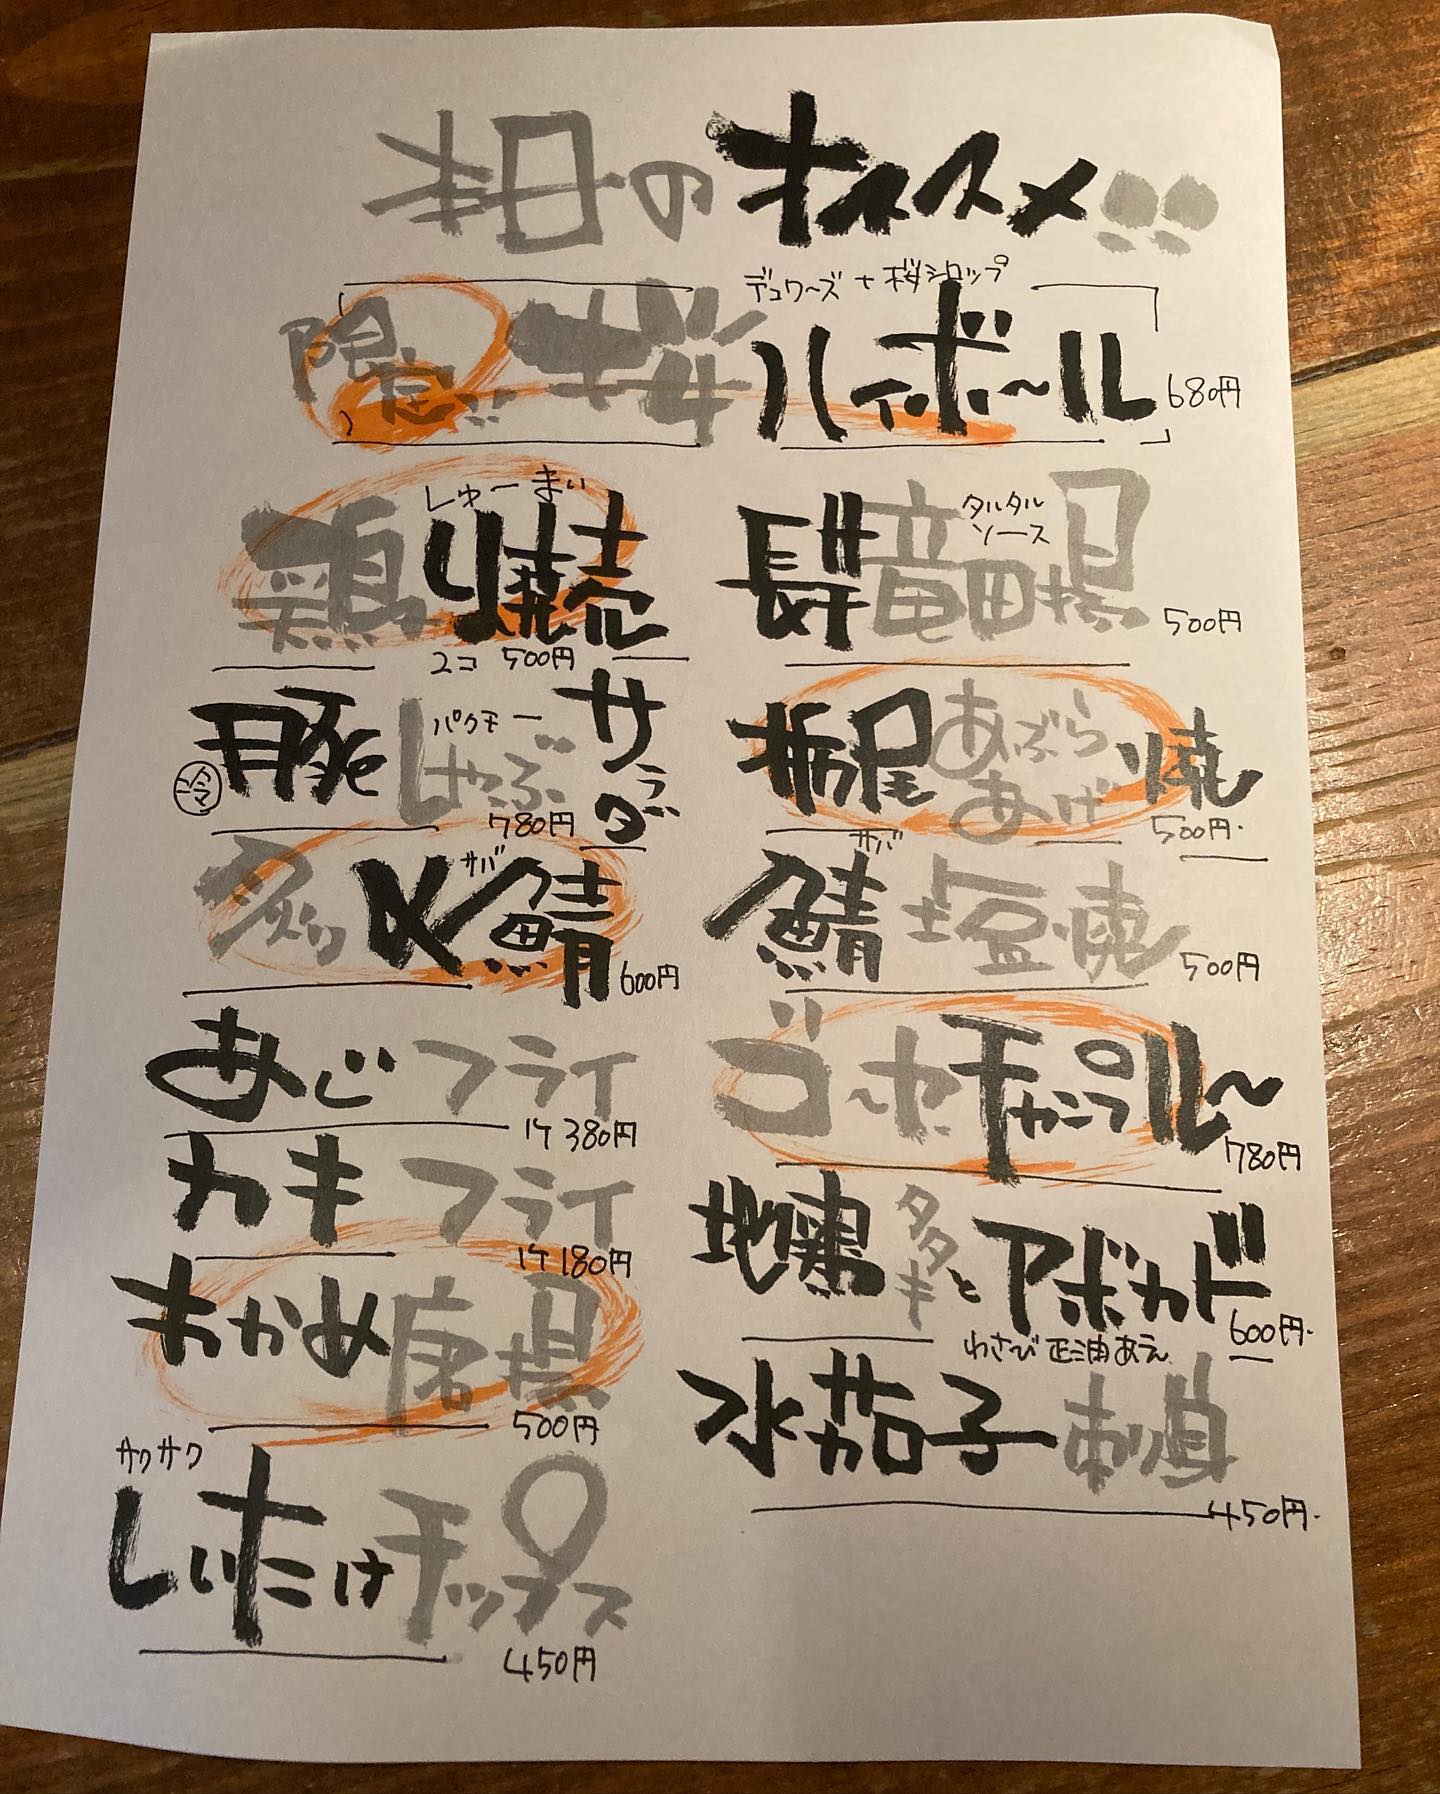 本日のオススメ!!!
デュワーズ+桜シロップ
限定!! 桜ハイボール 680円
しゅーまい
鶏り焼売
2コ 500円
冷 豚しゃぶサラダ
パクチー
780円
炙〆鯖
サバ
600円
あじフライ
1ケ 380円
カキフライ
1ケ 180円
わかめ唐揚
500円
サクサク
しいたけチップス
450円
長芋竜田揚
タルタル
ソース
500円
栃尾あぶらあげ焼
500円
サバ
鯖塩焼
500円
ゴ〜ヤ〜チャンプル〜
780円
地鶏タタキとアボカド
600円
わさび正油あえ
水茄子刺身
450円